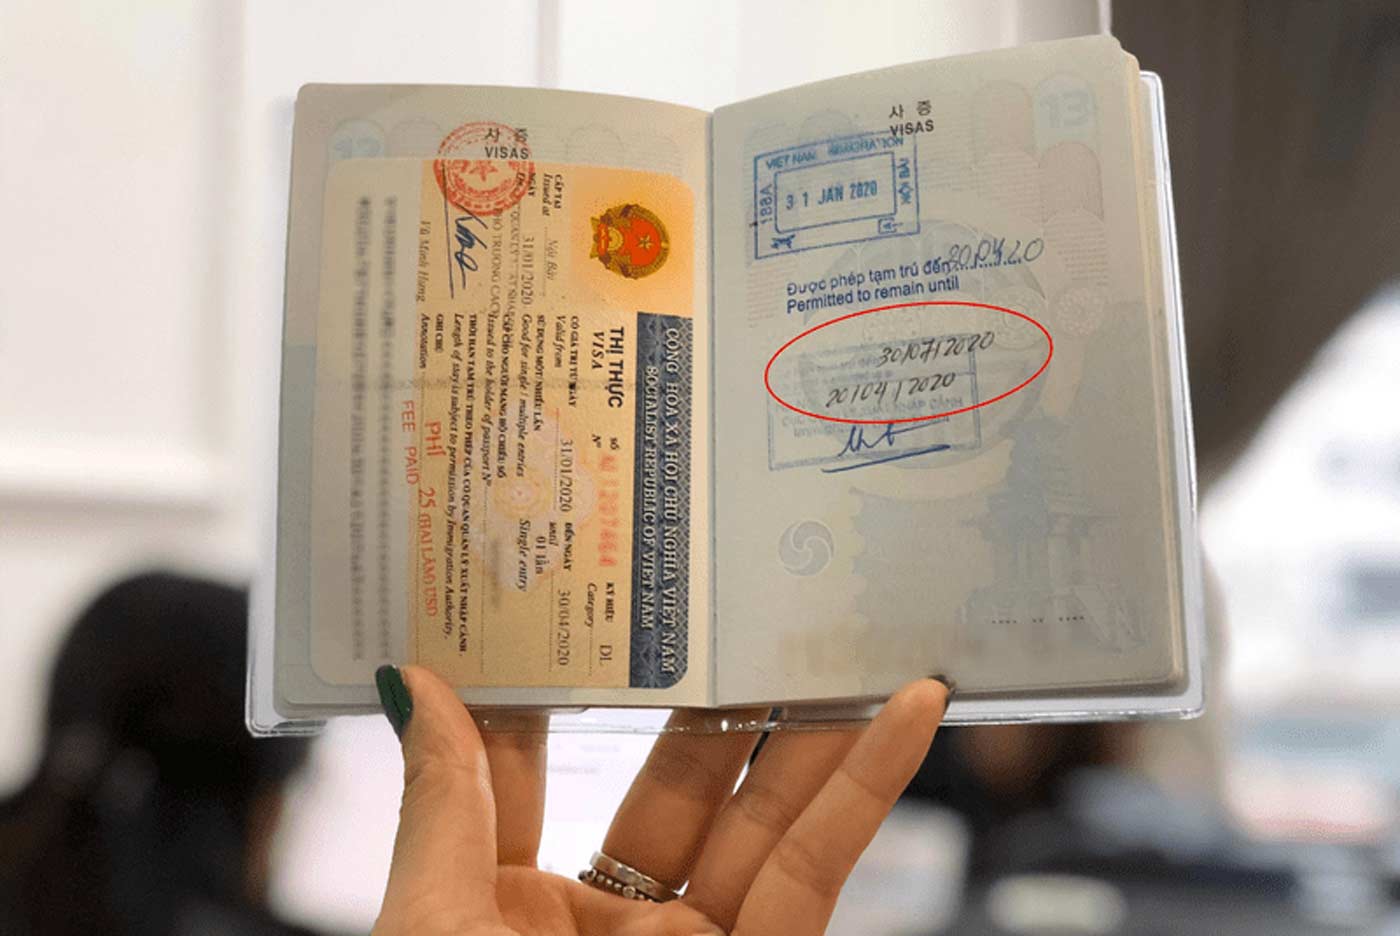 사 증
VISAS
CỘNG HÒA XÃ HỘI CHỦ NGHĨA VIỆT NAM
SOCIALIST REPUBLIC OF VIET NAM
THỊ THỰC
VISA
SỐ
Nº
KÝ HIỆU DL
Category
CẤP TẠI
Issued at Nội Bài
CÓ GIÁ TRỊ TỪ NGÀY 31/01/2020 ĐẾN NGÀY 30/04/2020
Valid from until
SỬ DỤNG MỘT/ NHIỀU LẦN 01 lần
Good for single / multiple entries Single entry
NGÀY 31/01/2020
CẤP CHO NGƯỜI MANG HỘ CHIẾU SỐ
Issued to the holder of passport Nº
THỜI HẠN TẠM TRÚ THEO PHÉP CỦA CƠ QUAN QUẢN LÝ XUẤT NHẬP CẢNH.
Length of stay is subject to permission by Immigration Authority.
GHI CHÚ
Annotation
Vũ Minh Hưng
PHÍ 25 (HAI LĂM) USD
FEE PAID
사 증
VISAS
VIET NAM IMMIGRATION
188A
31 JAN 2020
NỘI BÀI
Được phép tạm trú đến 300420
Permitted to remain until
30/07/2020
20/04/2020